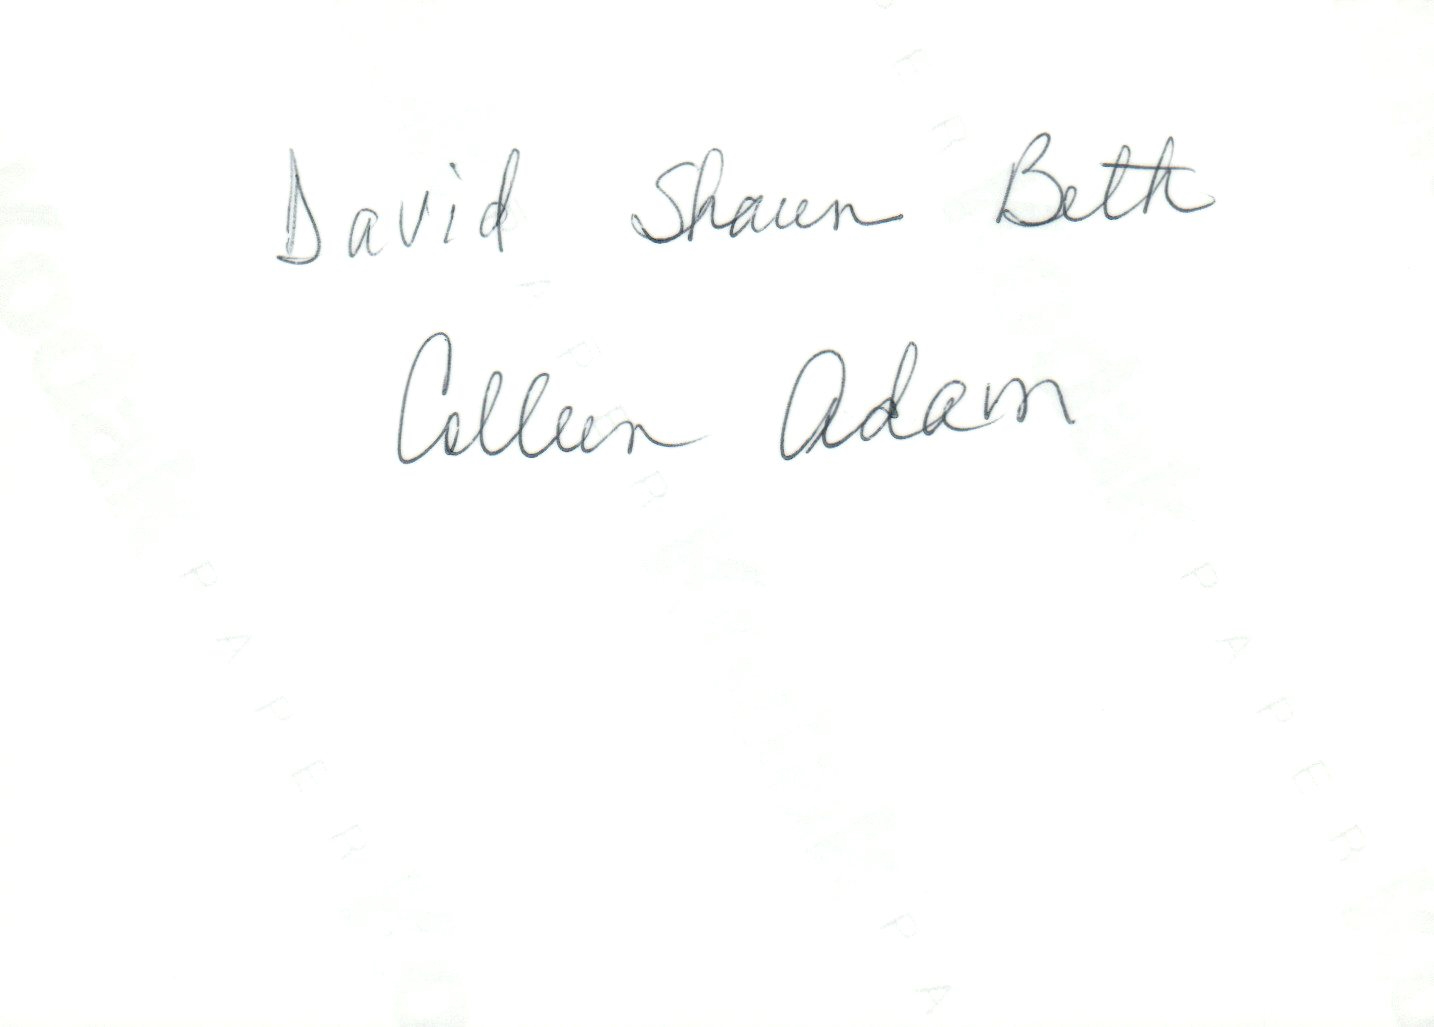 David Shaun Beth
Colleen Adam